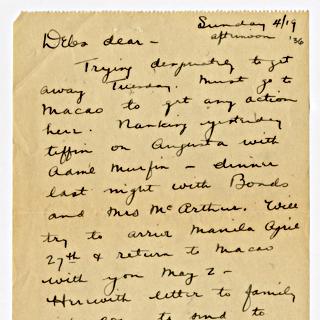 Sunday 4/19
afternoon '36
Debs dear -
Trying desperately to get
away Tuesday. Must go to
Macao to get any action
here. Nanking yesterday
tiffin on Augusta with
Adm'l Murfin - dinner
last night with Bonds
and Mrs McArthur. Will
try to arrive Manila April
27th & return to Macao
with you May 2 -
Herewith letter to family
to send to